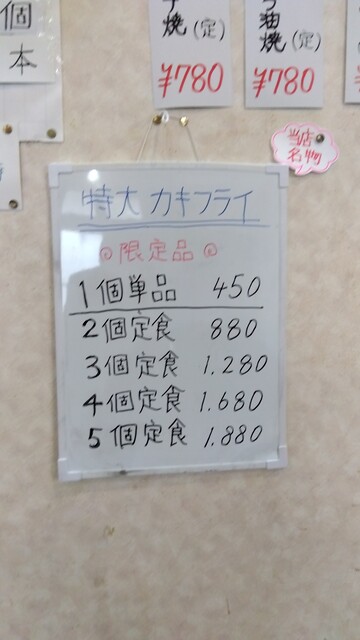 個
本
焼(定)
¥780
油
焼(定)
¥780
当店
名物
特大 カキフライ
◎限定品◎
1個単品 450
2個定食 880
3個定食 1.280
4個定食 1.680
5個定食 1.880